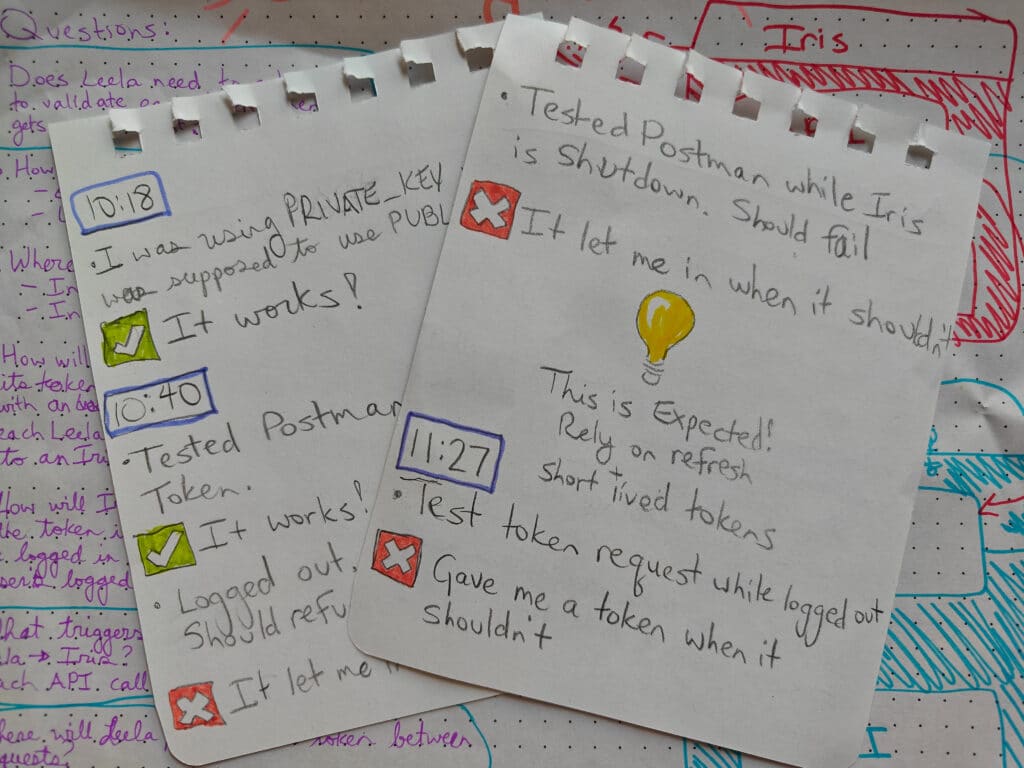 Questions:
Does Leela need to
to validate
gets
How
Where
- In
- In
How will
its token
with an
each Leela
to an Iris
How will I
the token
logged in
logged
What triggers
→ Iris?
each API call
Where will Leela token between
requests?
10:18
• I was using PRIVATE_KEY
was supposed to use PUBL
It works!
10:40
• Tested Postman
Token.
It works!
• Logged out.
Should refu
It let me
• Tested Postman while Iris
is Shutdown. Should fail
It let me in when it shouldn't
This is Expected!
Rely on refresh
+
short lived tokens
11:27
• Test token request while logged out
Gave me a token when it
shouldn't
Iris
I